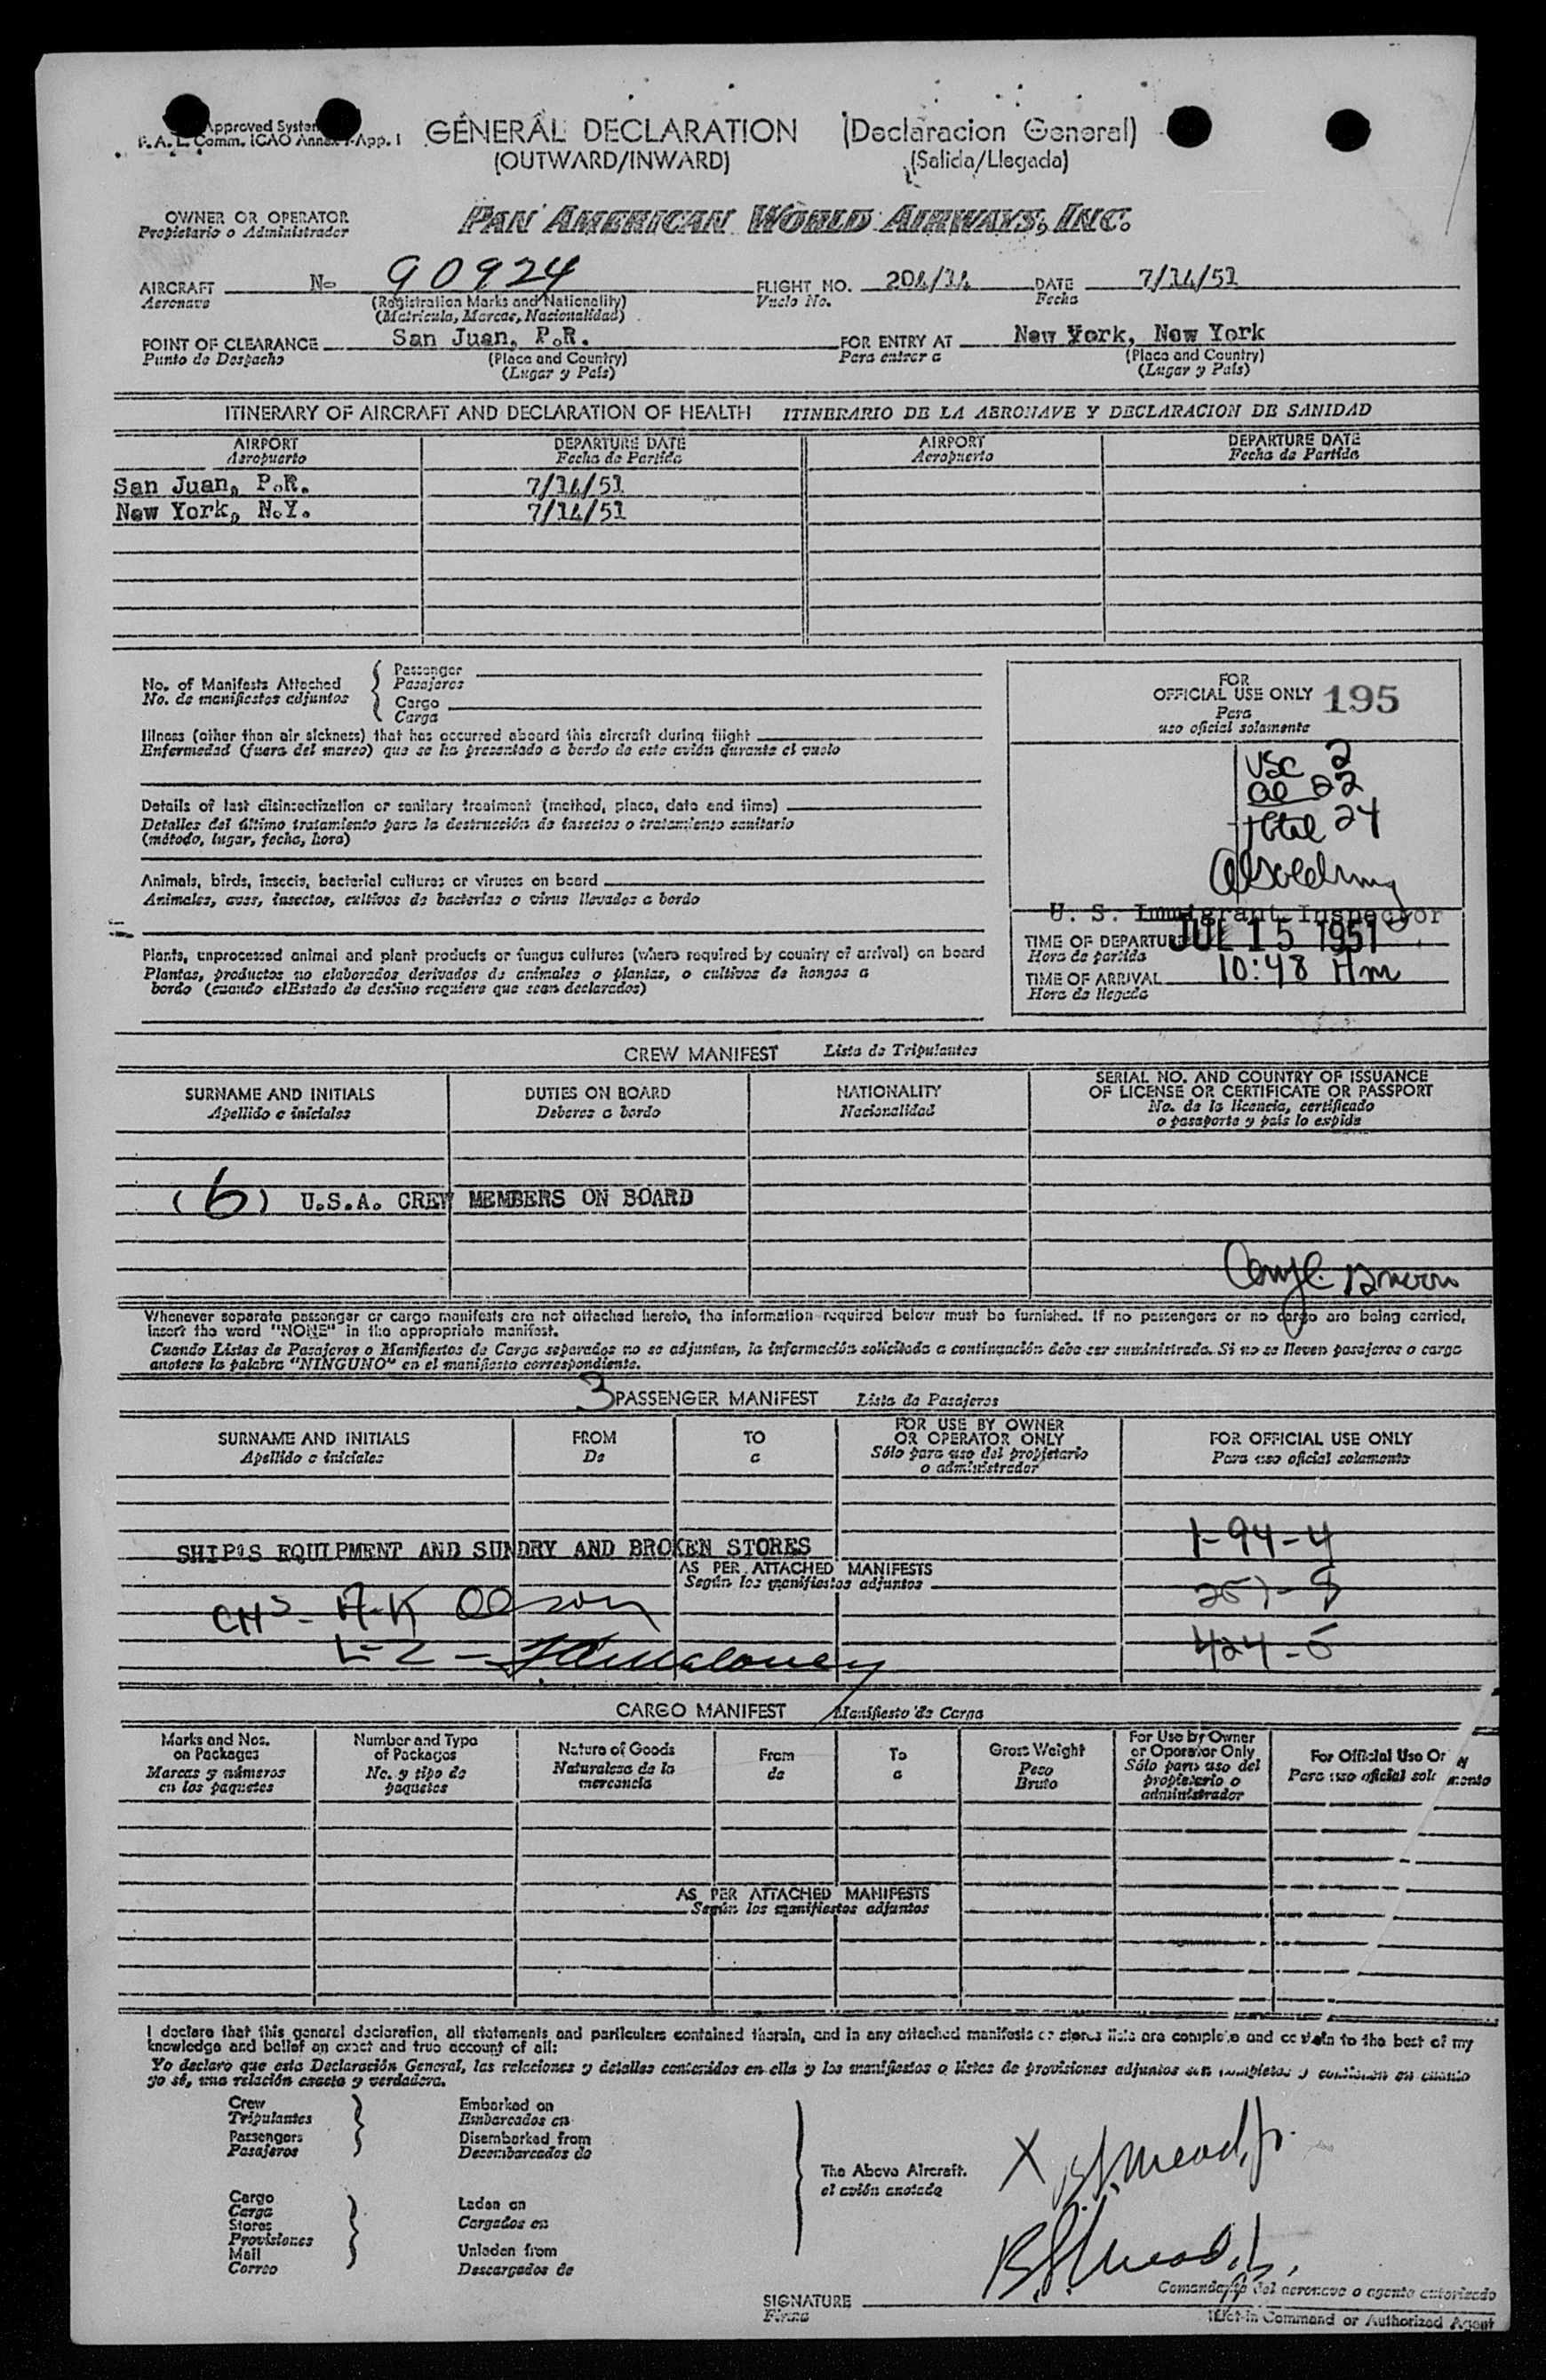 Approved System
F. A. L. Comm. ICAO Annex 9 App. I
GENERAL DECLARATION (Declaracion General)
(OUTWARD/INWARD) (Salida/Llegada)
OWNER OR OPERATOR
Propietario o Administrador
PAN AMERICAN WORLD AIRWAYS, INC.
AIRCRAFT No 90924 FLIGHT NO. 204/14 DATE 7/14/51
Aeronave (Registration Marks and Nationality) Vuelo No. Fecha
(Matricula, Marcas, Nacionalidad)
POINT OF CLEARANCE San Juan, P.R. FOR ENTRY AT New York, New York
Punto de Despacho (Place and Country) Para entrar a (Place and Country)
(Lugar y País) (Lugar y País)
ITINERARY OF AIRCRAFT AND DECLARATION OF HEALTH ITINERARIO DE LA AERONAVE Y DECLARACION DE SANIDAD
AIRPORT DEPARTURE DATE AIRPORT DEPARTURE DATE
Aeropuerto Fecha de Partida Aeropuerto Fecha de Partida
San Juan, P.R. 7/14/51
New York, N.Y. 7/14/51
No. of Manifests Attached
No. de manifiestos adjuntos
Passenger
Pasajeros
Cargo
Carga
Illness (other than air sickness) that has occurred aboard this aircraft during flight
Enfermedad (fuera del mareo) que se ha presentado a bordo de este avión durante el vuelo
Details of last disinsectization or sanitary treatment (method, place, date and time)
Detalles del último tratamiento para la destrucción de insectos o tratamiento sanitario
(método, lugar, fecha, hora)
Animals, birds, insects, bacterial cultures or viruses on board
Animales, aves, insectos, cultivos de bacterias o virus llevados a bordo
Plants, unprocessed animal and plant products or fungus cultures (where required by country of arrival) on board
Plantas, productos no elaborados derivados de animales o plantas, o cultivos de hongos a
bordo (cuando elEstado de destino requiere que sean declarados)
FOR
OFFICIAL USE ONLY 195
Para
uso oficial solamente
USC 2
al 22
total 24
U. S. Immigrant Inspector
TIME OF DEPARTURE JUL 15 1951
Hora de partida
TIME OF ARRIVAL 10:48 Am
Hora de llegada
CREW MANIFEST Lista de Tripulantes
SURNAME AND INITIALS DUTIES ON BOARD NATIONALITY SERIAL NO. AND COUNTRY OF ISSUANCE
OF LICENSE OR CERTIFICATE OR PASSPORT
Apellido e iniciales Deberes a bordo Nacionalidad No. de la licencia, certificado
o pasaporte y país lo expide
(6) U.S.A. CREW MEMBERS ON BOARD
Whenever separate passenger or cargo manifests are not attached hereto, the information required below must be furnished. If no passengers or no cargo are being carried,
insert the word "NONE" in the appropriate manifest.
Cuando Listas de Pasajeros o Manifiestos de Carga separados no se adjuntan, la información solicitada a continuación debe ser suministrada. Si no se lleven pasajeros o carga
anotese la palabra "NINGUNO" en el manifiesto correspondiente.
3 PASSENGER MANIFEST Lista de Pasajeros
SURNAME AND INITIALS FROM TO FOR USE BY OWNER FOR OFFICIAL USE ONLY
OR OPERATOR ONLY
Apellido e iniciales De a Sólo para uso del propietario Para uso oficial solamente
o administrador
1-94-4
SHIP'S EQUIPMENT AND SUNDRY AND BROKEN STORES
AS PER ATTACHED MANIFESTS
Según los manifiestos adjuntos
257-8
CHS - A-K Olson
424-5
L-Z - Maloney
CARGO MANIFEST Manifiesto de Carga
Marks and Nos.
on Packages
Marcas y números
en los paquetes
Number and Type
of Packages
No. y tipo de
paquetes
Nature of Goods
Naturaleza de la
mercancia
From
de
To
a
Gross Weight
Peso
Bruto
For Use by Owner
or Operator Only
Sólo para uso del
propietario o
administrador
For Official Use Only
Para uso oficial solamente
AS PER ATTACHED MANIFESTS
Según los manifiestos adjuntos
I declare that this general declaration, all statements and particulars contained therein, and in any attached manifests or stores lists are complete and contain to the best of my
knowledge and belief an exact and true account of all:
Yo declaro que esta Declaración General, las relaciones y detalles contenidos en ella y los manifiestos o listas de provisiones adjuntos son completos y contienen en cuanto
yo sé, una relación exacta y verdadera.
Crew
Tripulantes
Passengers
Pasajeros
Embarked on
Embarcados en
Disembarked from
Desembarcados de
Cargo
Carga
Stores
Provisiones
Mail
Correo
Laden on
Cargados en
Unladen from
Descargados de
The Above Aircraft.
el avión anotado
X B J Mead, Jr.
B J Mead, Jr.
SIGNATURE
Firma
Comandante del aeronave o agente autorizado
Pilot-in Command or Authorized Agent